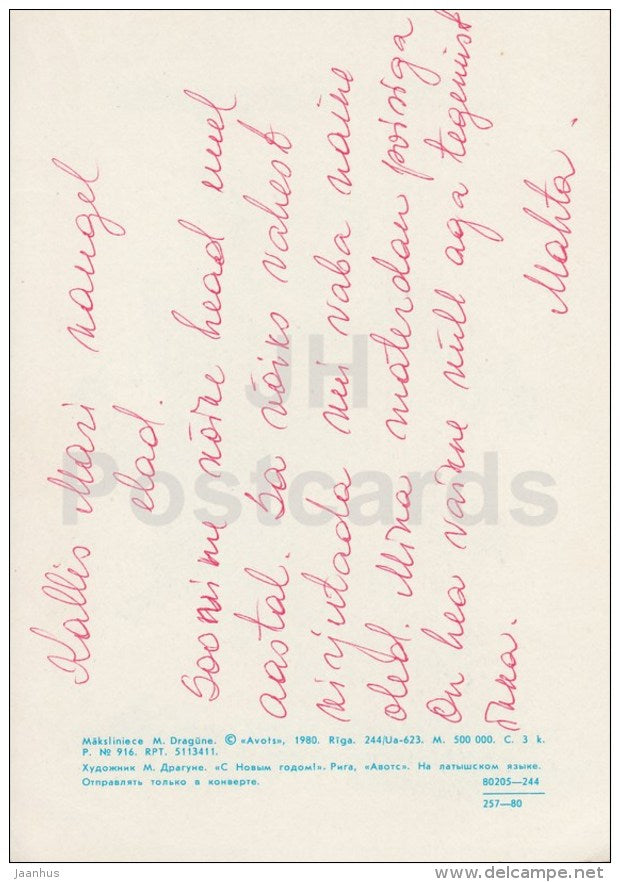 Kallis Mari kaugel
elad.
Soovime kõike head uuel
aastal. Sa võiks vahest
kirjutada kui vaba naine
oled. Mina materdan poisiga
On hea väike küll aga tegemist
ikka.
Mahta.
JH
Postcards
Māksliniece M. Dragūne. © «Avots», 1980. Rīga. 244/Ua-623. M. 500 000. C. 3 k.
P. № 916. RPT. 5113411.
Художник М. Драгуне. «С Новым годом!». Рига, «Авотс». На латышском языке.
Отправлять только в конверте.
80205—244
257—80
jaanhus
www.delcampe.net